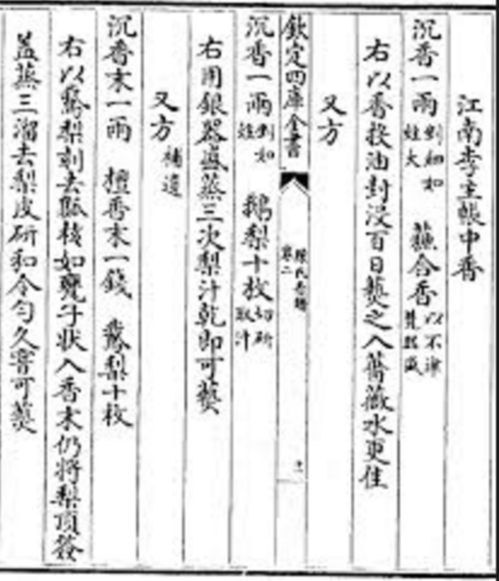 江南李主帳中香
沉香一兩剉細如炷大 蘇合香以不津甆器盛
右以香投油封浸百日爇之入薔薇水更佳
又方
欽定四庫全書 陳氏香譜 卷二
沉香一兩剉如炷大 鵝梨十枚切研取汁
右用銀器盛蒸三次梨汁乾即可爇
又方補遺
沉香末一兩 檀香末一錢 鵞梨十枚
右以鵞梨刻去瓤核如甕子狀入香末仍將梨頂簽
盖蒸三溜去梨皮研和令匀久窨可爇